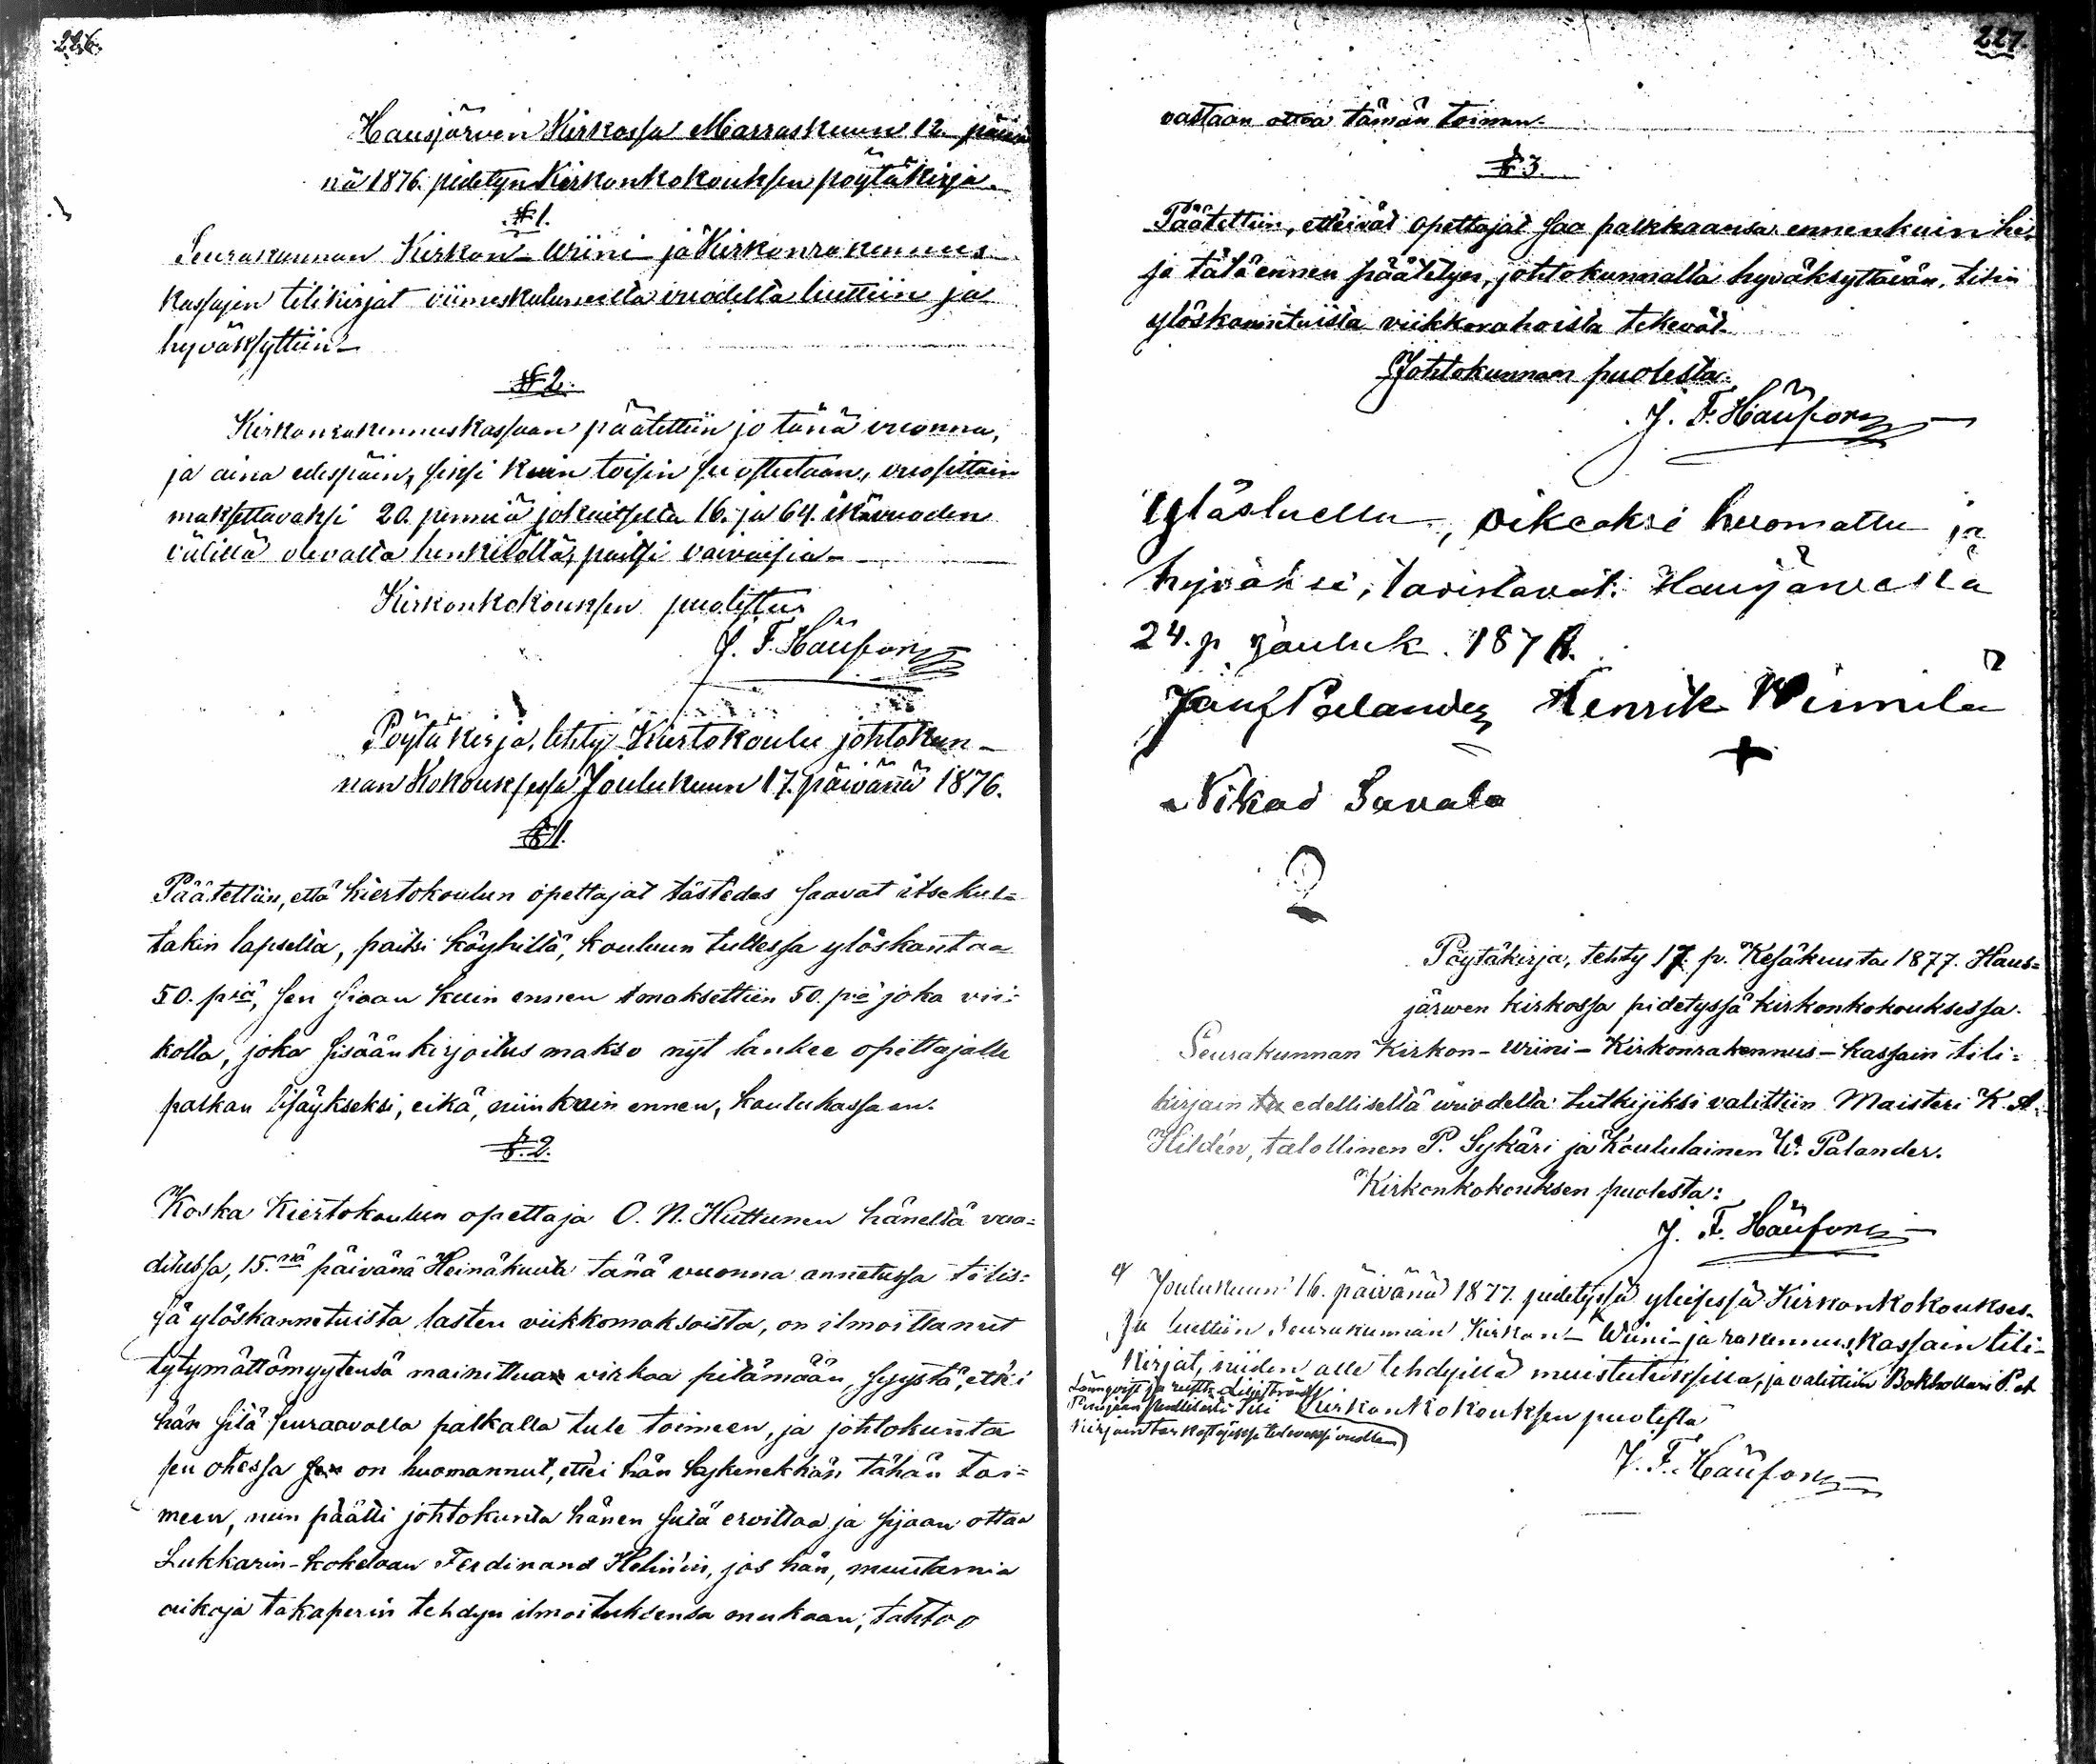 226.
Hausjärven Kirkossa Marraskuun 12. päivä
nä 1876. pidetyn Kirkonkokouksen pöytäkirja.
§ 1.
Seurakunnan Kirkon- Wiini- ja Kirkonrakennus-
kassajen tilikirjat viimeskuluneelta vuodelta luettiin ja
hyväksyttiin.-
§ 2.
Kirkonrakennuskassaan päätettiin jo tänä vuonna,
ja aina edespäin, siksi kuin toisin suostutaan, vuosittain
maksettavaksi 20. penniä jokaitselta 16. ja 64. ikävuoden
välillä olevalta henkilöltä, paitsi vaivaisia-
Kirkonkokouksen puolesta
J. F. Häufors
Pöytäkirja, tehty Kiertokoulu johtokun-
nan Kokouksessa Joulukuun 17. päivänä 1876.
§ 1.
Päätettiin, että kiertokoulun opettajat tästedes saavat itsekul-
takin lapselta, paitsi köyhiltä, kouluun tullessa ylöskantaa
50. piä, sen siaan kuin ennen maksettiin 50. piä joka vii-
kolta, joka sisäänkirjoitus makso nyt lankee opettajalle
palkan lisäykseksi, eikä, niinkuin ennen, koulukassaan.
§. 2.
Koska Kiertokoulun opettaja O. N. Huttunen häneltä vaa-
ditussa, 15.nä päivänä Heinäkuuta tänä vuonna annetussa tilis-
sä ylöskannetuista lasten viikkomaksoista, on ilmoittanut
tytymättömyytensä mainittua virkaa pitämään, syystä, ett'ei
hän sitä seuraavalla palkalla tule toimeen, ja johtokunta
sen ohessa on huomannut, ettei hän laskenekkän tähän toi-
meen, niin päätti johtokunta hänen siitä eroittaa ja sijaan ottaa
Lukkarin-kokelaan Ferdinand Helin'in, jos hän, muutamia
aikoja takaperin tehdyn ilmoituksensa mukaan, tahtoo
227.
vastaan ottaa tämän toimen.
§ 3.
Päätettiin, etteivät opettajat saa palkkaansa ennenkuin he,
ja tätä ennen päätetyn, johtokunnalta hyväksyttävän, tilin
ylöskannetuista viikkorahoista tekevät.
Johtokunnan puolesta:
J. F. Häufors
Ylösluettu, oikeaksi huomattu ja
hyväksi, todistavat: Hausjärvellä
24. p jouluk. 1876.
Palander Henrik Wimmilä
+
Nikad Savala
Pöytäkirja, tehty 17. p. Kesäkuuta 1877. Haus-
järwen kirkossa pidetyssä kirkonkokouksessa.
Seurakunnan Kirkon- Wiini- Kirkonrakennus- kassain tili-
kirjain edelliseltä wuodelta tutkijiksi valittiin Maisteri K. A.
Hildén, talollinen P. Sykäri ja Koululainen W. Palander.
Kirkonkokouksen puolesta:
J. F. Häufors
Joulukuun 16. päivänä 1877. pidetyssä yleisessä Kirkonkokoukses-
sa luettiin Seurakunnan Kirkon- Wiini- ja rakennuskassain tili-
kirjat, niiden alle tehdyillä muistutuksilla, ja valittiin Bokhollari P. A.
Lönnqvist ja
tili
kirjain tarkastajiksi tulevaksi vuodeksi
Kirkonkokouksen puolesta
J. F. Häufors